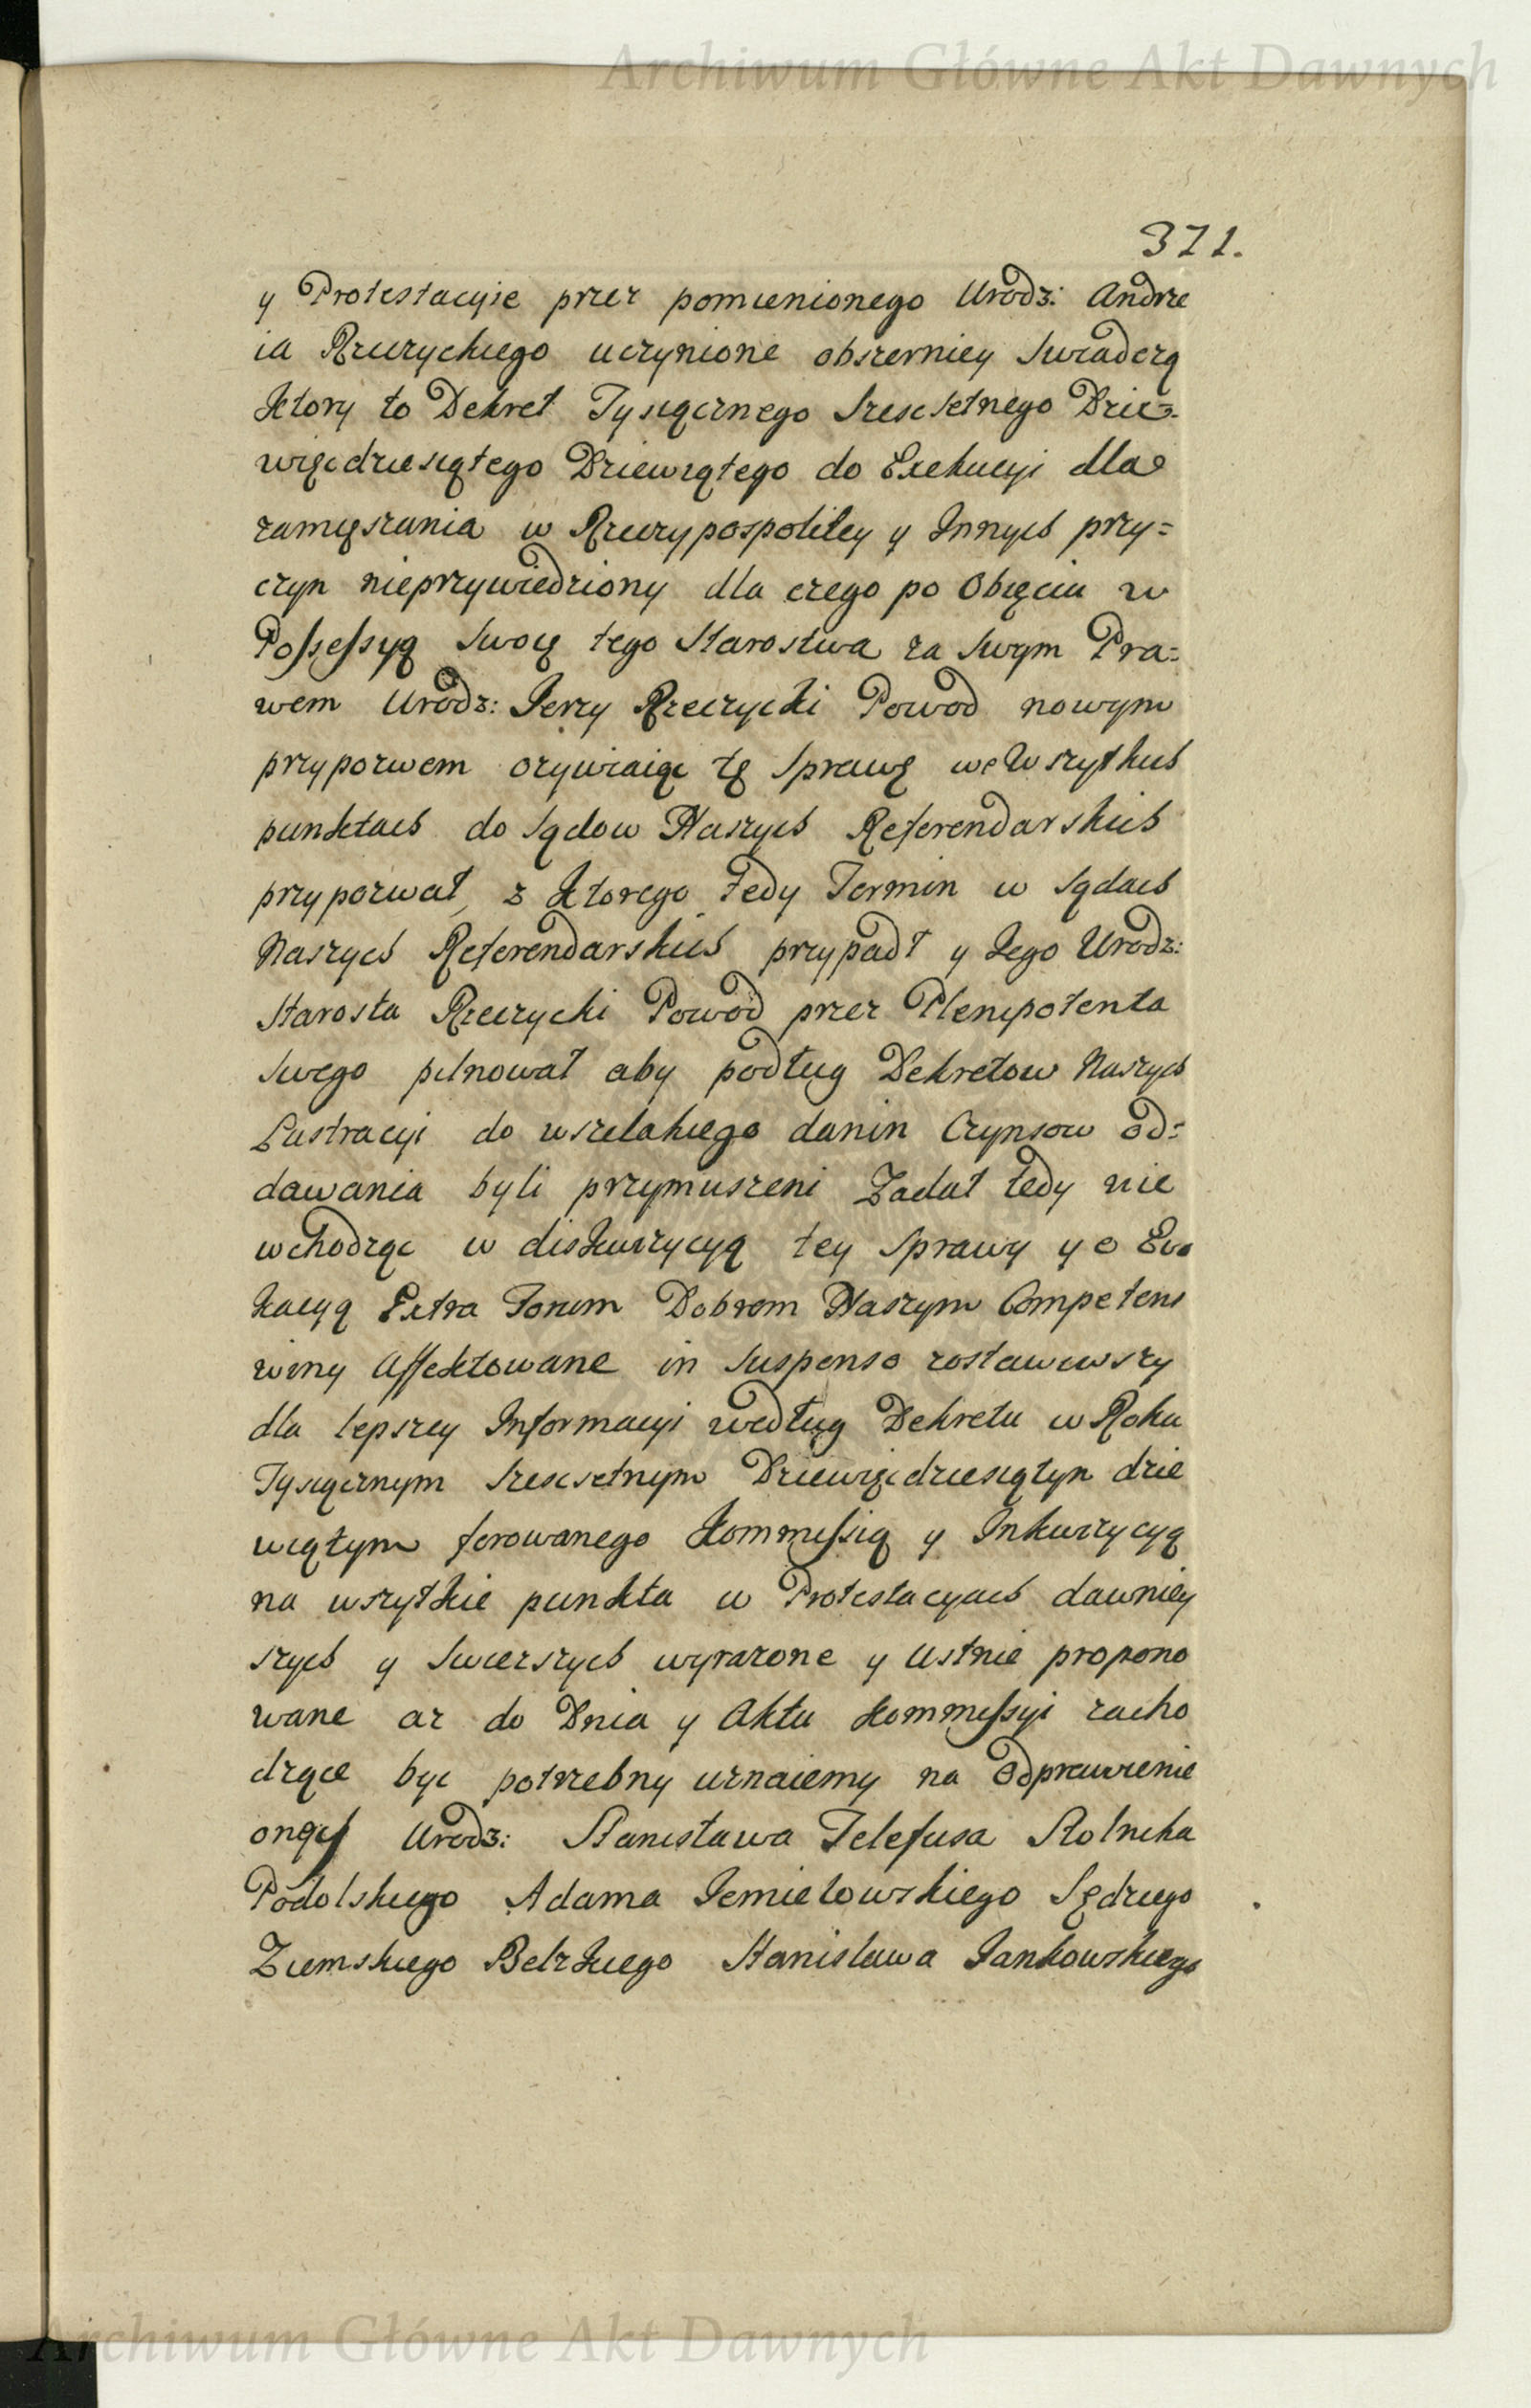 Archiwum Główne Akt Dawnych
371.
y Protestacyie przez pomienionego Urodz: Andrze
ia Rzeczyckiego uczynione obszerniey swiadczą
Ktory to Dekret Tysiącznego Szescsetnego Dzie=
więcdziesiątego Dziewiątego do Exekucyi dla
zamęszania w Rzeczypospolitey y Innych przy=
czyn nieprzywiedziony dla czego po Obięciu w
Possessyą swoię tego Starostwa za swym Pra=
wem Urodz: Jerzy Rzeczycki Powod nowym
przypozwem ozywiaiąc tę sprawę we Wszytkich
punktach do sądow Naszych Referendarskich
przypozwał, z Ktorego tedy Termin w sądach
Naszych Referendarskich przypadł y Jego Urodz:
Starosta Rzeczycki Powod przez Plenipotenta
swego pilnował aby podług Dekretow Naszych
Lustracyi do wszelakiego danin Czynszow od=
dawania byli przymuszeni Żądał tedy nie
wchodząc w diskwizycyą tey sprawy y o Ewo
kacyą Extra Forum Dobrom Naszym Competens
winy affektowane in suspenso zostawiwszy
dla lepszey Informacyi według Dekretu w Roku
Tysiącznym Szescsetnym Dziewięcdziesiątym dzie
wiątym ferowanego Kommissią y Inkwizycyą
na wszytkie punkta w Protestacyach dawniey
szych y swierszych wyrazone y Ustnie propono
wane az do Dnia y Aktu Kommissyi zacho
dzące byc potrzebny uznaiemy na Odprawienie
onych Urodz: Stanisława Telefusa Stolnika
Podolskiego Adama Jemielowskiego Sędziego
Ziemskiego Belzkiego Stanisława Jankowskiego
Archiwum Główne Akt Dawnych